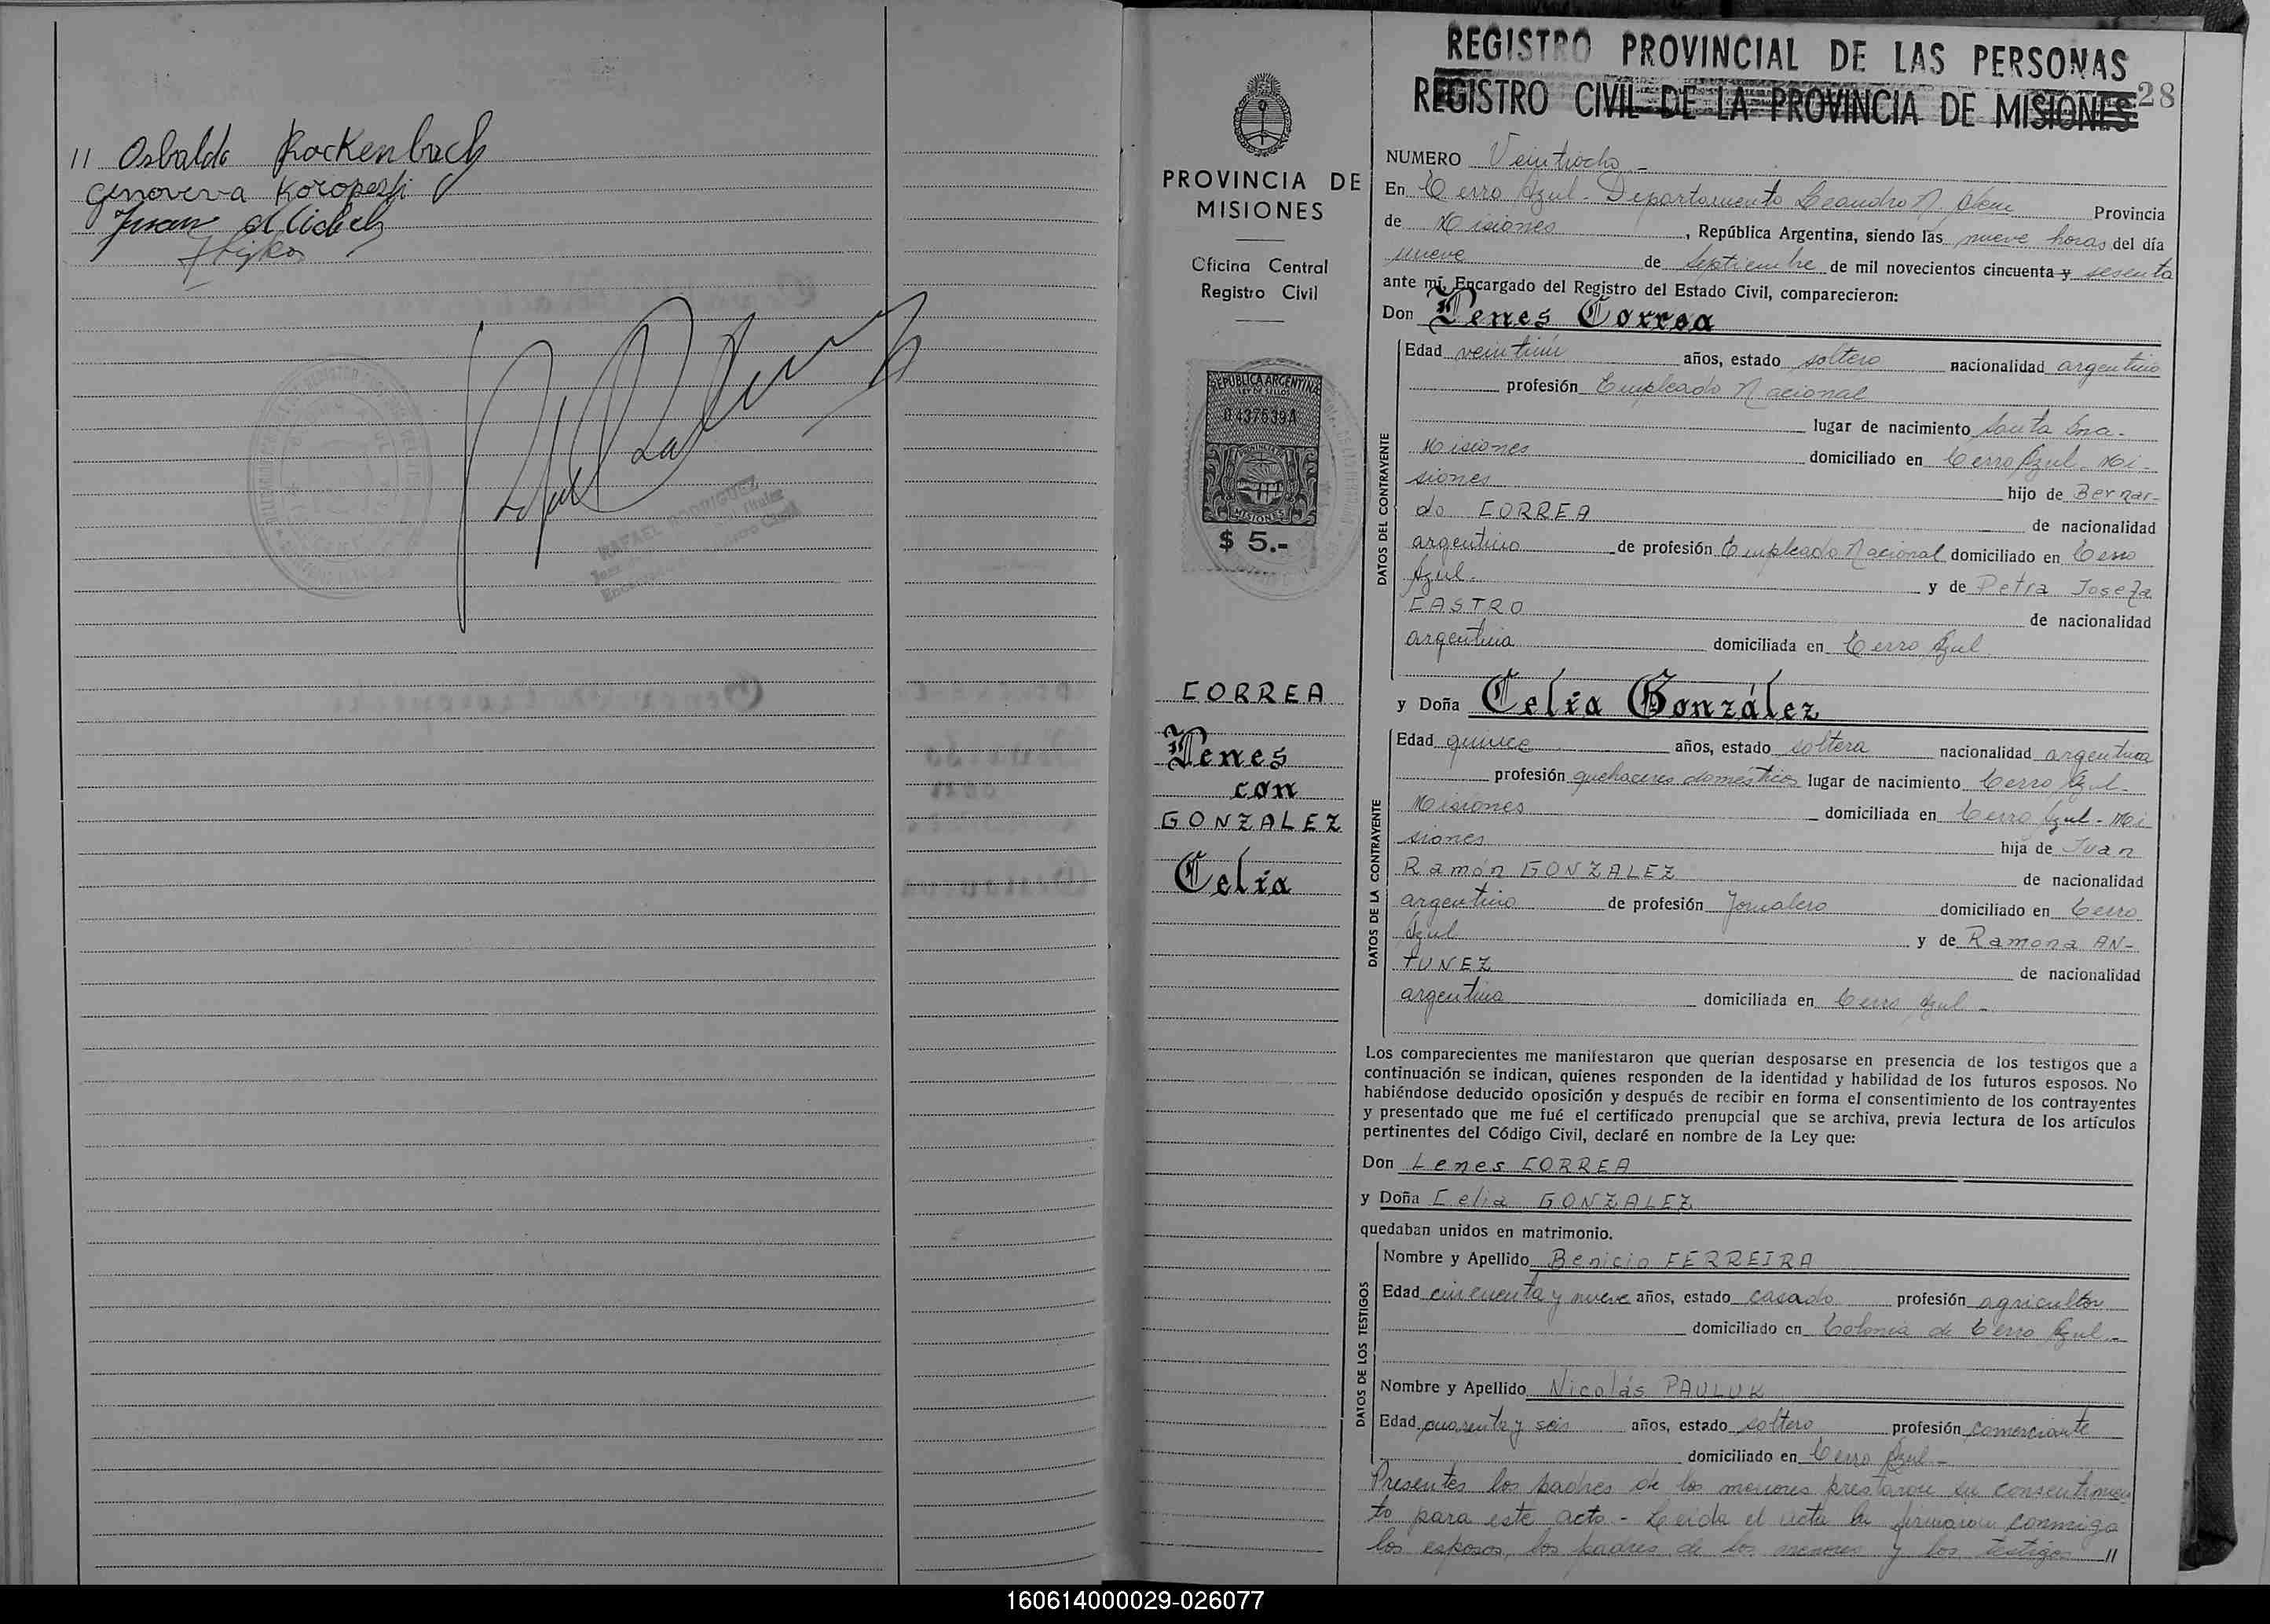 11 Osbaldo Rockenbach
Genoveva Koropeski
Juan
RAFAEL RODRIGUEZ
REGISTRO PROVINCIAL DE LAS PERSONAS
REGISTRO CIVIL DE LA PROVINCIA DE MISIONES
28
PROVINCIA DE
MISIONES
Oficina Central
Registro Civil
REPUBLICA ARGENTINA
LEY DE SELLOS
0437539A
MISIONES
$ 5.-
CORREA
Lenes
con
GONZALEZ
Celia
NUMERO Veintiocho -
En Cerro Azul - Departamento Leandro N. Alem Provincia
de Misiones, República Argentina, siendo las nueve horas del día
nueve de Septiembre de mil novecientos cincuenta y sesenta
ante mí, Encargado del Registro del Estado Civil, comparecieron:
Don Lenes Correa
DATOS DEL CONTRAYENTE
Edad veintiún años, estado soltero nacionalidad argentino
profesión Empleado Nacional
lugar de nacimiento Santa Ana -
Misiones domiciliado en Cerro Azul - Mi-
siones hijo de Bernar-
do CORREA de nacionalidad
argentino de profesión Empleado Nacional domiciliado en Cerro
Azul. y de Petra Josefa
CASTRO de nacionalidad
argentina domiciliada en Cerro Azul
y Doña Celia González
DATOS DE LA CONTRAYENTE
Edad quince años, estado soltera nacionalidad argentina
profesión quehaceres domésticos lugar de nacimiento Cerro Azul -
Misiones domiciliada en Cerro Azul - Mi
siones hija de Juan
Ramón GONZALEZ de nacionalidad
argentino de profesión Jornalero domiciliado en Cerro
Azul y de Ramona AN-
TUNEZ de nacionalidad
argentina domiciliada en Cerro Azul -
Los comparecientes me manifestaron que querían desposarse en presencia de los testigos que a
continuación se indican, quienes responden de la identidad y habilidad de los futuros esposos. No
habiéndose deducido oposición y después de recibir en forma el consentimiento de los contrayentes
y presentado que me fué el certificado prenupcial que se archiva, previa lectura de los artículos
pertinentes del Código Civil, declaré en nombre de la Ley que:
Don Lenes CORREA
y Doña Celia GONZALEZ
quedaban unidos en matrimonio.
DATOS DE LOS TESTIGOS
Nombre y Apellido Benicio FERREIRA
Edad cincuenta y nueve años, estado casado profesión agricultor
domiciliado en Colonia de Cerro Azul -
Nombre y Apellido Nicolás PAULUK
Edad cuarenta y seis años, estado soltero profesión comerciante
domiciliado en Cerro Azul -
Presentes los padres de los menores prestaron su consentimien
to para este acto - Leida el acta la firmaron conmigo
los esposos, los padres de los menores y los testigos 11
160614000029-026077